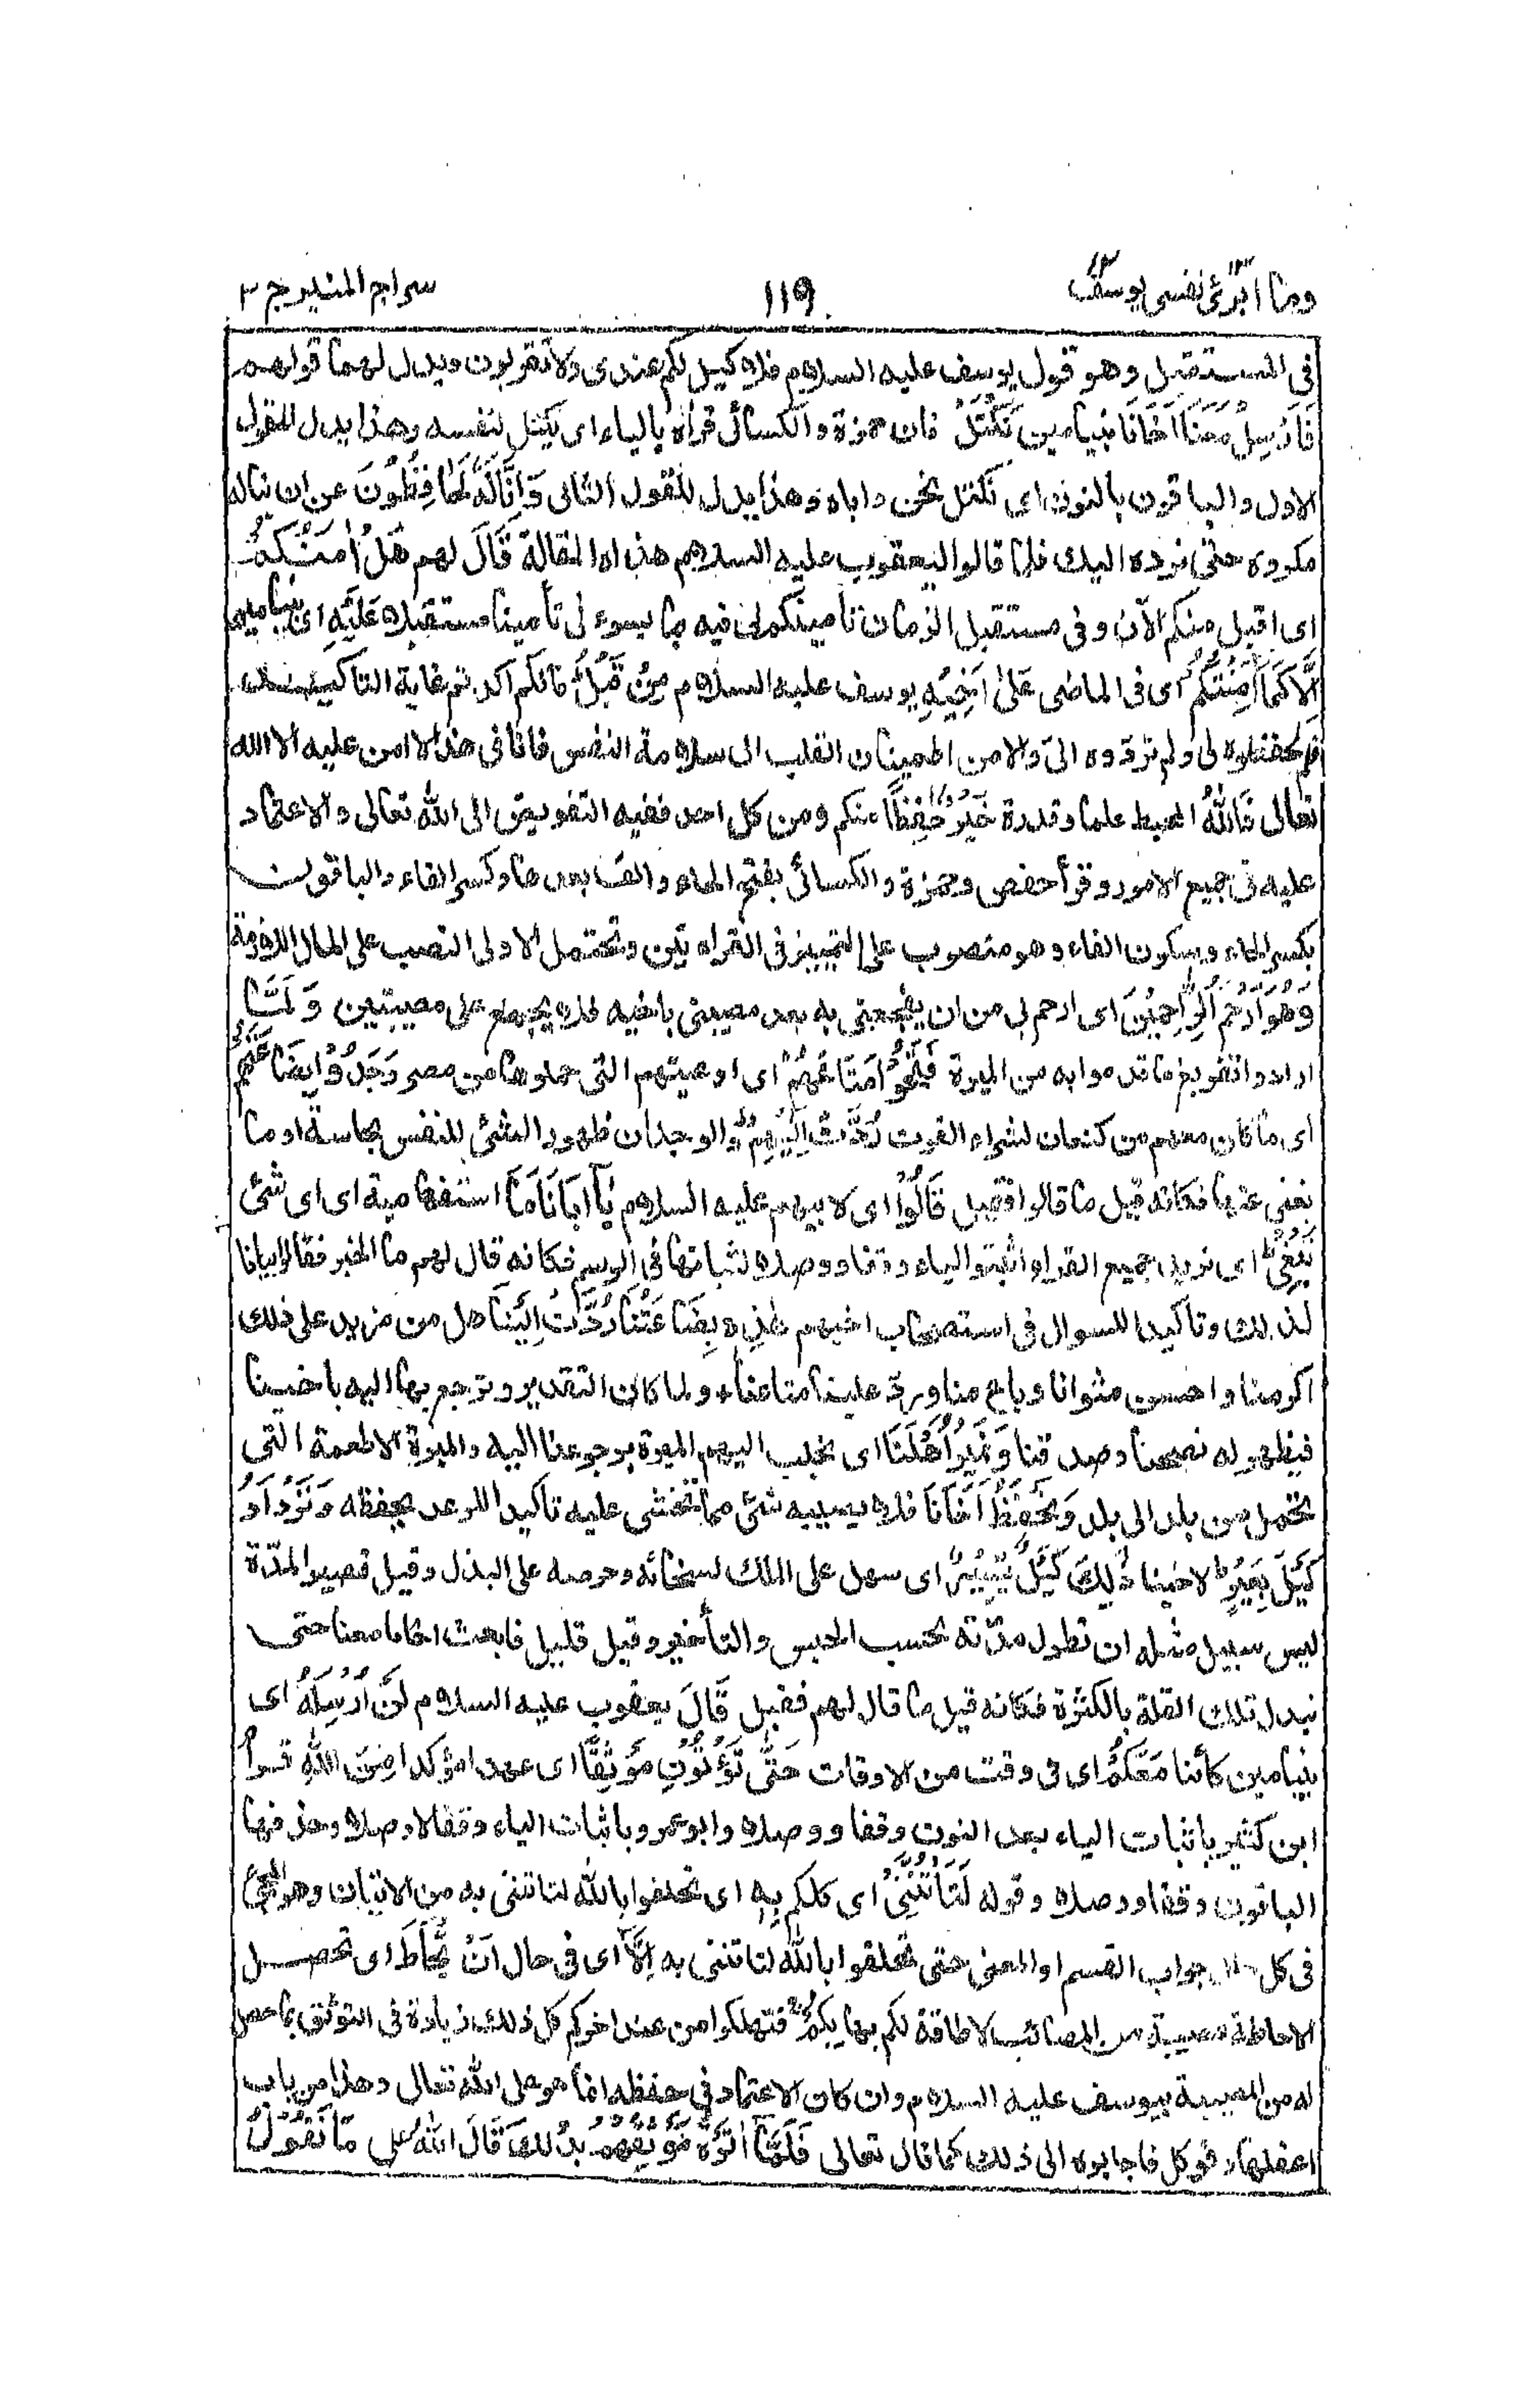 وما ابرئ نفسی یوسف ۱۲
۱۱۹
سراج المنیر ج ۲
فی المستقبل وهو قول یوسف علیه السلام فلا کیل لکم عندی ولا تقربون ویدل لهما قولهم
فَاَرْسِلْ مَعَنَا اَخَانَا بنیامین نَکْتَلْ فان حمزة والکسائی قرأه بالیاء ای یکتل لنفسه وهذا یدل للقول
الاول والباقون بالنون ای نکتل نحن وایاه وهذا یدل للقول الثانی وَاِنَّا لَهٗ لَحٰفِظُوْنَ عن ان یناله
مکروه حتی نرده الیک فلما قالوا لیعقوب علیه السلام هذه المقالة قَالَ لهم هَلْ اٰمَنُکُمْ
ای اقبل منکم الآن وفی مستقبل الزمان تأمینکم لی فیه بما یسوء لی تأمینا مستقبلا عَلَیْهِ ای بنیامین
اِلَّا کَمَا اَمِنْتُکُمْ ای فی الماضی عَلٰی اَخِیْهِ یوسف علیه السلام مِنْ قَبْلُ فانکم اکدتم غایة التاکید
فلم تحفظوه لی ولم تردوه الیّ والامن اطمینان القلب الی سلامة النفس فانا فی هذا لا امن علیه الا الله
تعالی فَاللّٰهُ المحیط علما وقدرة خَیْرٌ حٰفِظًا منکم ومن کل احد ففیه التفویض الی الله تعالی والاعتماد
علیه فی جمیع الامور وقرأ حفص وحمزة والکسائی بفتح الحاء والف بعدها وکسر الفاء والباقون
بکسر الحاء وسکون الفاء وهو منصوب علی التمییز فی القراءتین وتحتمل الاولی النصب علی الحال اللازمة
وَهُوَ اَرْحَمُ الرّٰحِمِیْنَ ای ارحم لی من ان یفجعنی به بعد مصیبتی باخیه فلا یجمع علی مصیبتین وَلَمَّا
ارادوا تفریغ ما قدموا به من المیرة فَتَحُوْا مَتَاعَهُمْ ای اوعیتهم التی حملوها من مصر وَجَدُوْا بِضَاعَتَهُمْ
ای ما کان معهم من کنعان لشراء القوت رُدَّتْ اِلَیْهِمْ والوجدان ظهور الشئ للنفس بحاسة او ما
یغنی عنها فکانه قیل ما قالوا فقیل قَالُوْا ای لابیهم علیه السلام یٰٓاَبَانَا مَا استفهامیة ای ای شئ
نَبْغِیْ ای نرید جمیع القراء اثبتوا الیاء وقفا ووصلا لثباتها فی الرسم فکانه قال لهم ما الخبر فقالوا بیانا
لذلک وتأکیدا للسوال فی استصحاب اخیهم هٰذِهٖ بِضَاعَتُنَا رُدَّتْ اِلَیْنَا هل من مزید علی ذلک
اکرمنا واحسن مثوانا وباع منا ورد علینا متاعنا ولما کان التقدیر ونرجع بها الیه باخینا
فیظهر له نصحنا وصدقنا وَنَمِیْرُ اَهْلَنَا ای نجلب الیهم المیرة برجوعنا الیه والمیرة الاطعمة التی
تحمل من بلد الی بلد وَنَحْفَظُ اَخَانَا فلا یصیبه شئ مما تخشی علیه تاکیدا للوعد بحفظه وَنَزْدَادُ
کَیْلَ بَعِیْرٍ لاخینا ذٰلِکَ کَیْلٌ یَّسِیْرٌ ای سهل علی الملک لسخائه وحرصه علی البذل وقیل قصیر المدة
لیس سبیل مثله ان تطول مدّته بحسب الحبس والتأخیر وقیل قلیل فابعث اخانا معنا حتی
نبدل تلک القلة بالکثرة فکانه قیل ما قال لهم فقیل قَالَ یعقوب علیه السلام لَنْ اُرْسِلَهٗ ای
بنیامین کائنا مَعَکُمْ ای فی وقت من الاوقات حَتّٰی تُؤْتُوْنِ مَوْثِقًا ای عهدا مؤکدا مِّنَ اللّٰهِ قرأ
ابن کثیر باثبات الیاء بعد النون وقفا ووصلا وابو عمرو باثبات الیاء وقفا لا وصلا وحذفها
الباقون وقفا ووصلا وقوله لَتَاْتُنَّنِیْ ای کلکم بِهٖ ای تحلفوا بالله لتاتننی به من الاتیان وهو المجئ
فی کل جواب القسم او المعنی حتی تحلفوا بالله لتاتننی به اِلَّا ای فی حال اَنْ یُّحَاطَ ای تحصل
الاحاطة مصیبة من المصائب لا طاقة لکم بها بِکُمْ فتهلکوا من عند اخرکم کل ذلک زیادة فی التوثق بما حصل
له من المصیبة بیوسف علیه السلام وان کان الاعتماد فی حفظه انما هو علی الله تعالی وهذا من باب
اعقلها وتوکل فاجابوه الی ذلک کما قال تعالی فَلَمَّا اٰتَوْهُ مَوْثِقَهُمْ بذلک قَالَ اللّٰهُ عَلٰی مَا نَقُوْلُ